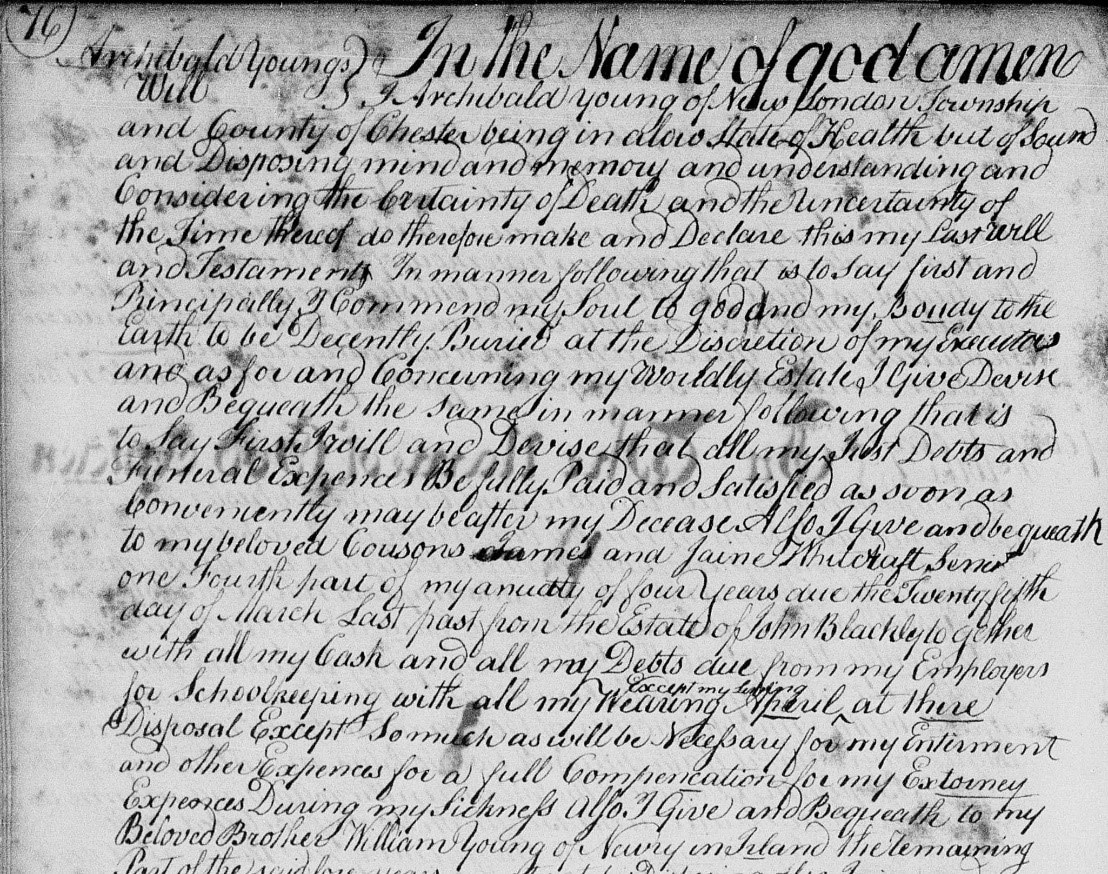 76
Archibald Youngs) In the Name of god amen
Will } I Archibald young of New London Township
and County of Chester being in a low State of Health but of Sound
and Disposing mind and memory and understanding and
Considering the Certainty of Death and the Uncertainty of
the Time thereof do therefore make and Declare this my Last Will
and Testament In manner following that is to Say first and
Principally I Commend my Soul to god and my Boudy to the
Earth to be Decently Buried at the Discretion of my Executors
and as for and Concerning my Worldly Estate I Give Devise
and Bequeath the Same in manner following that is
to Say First I will and Devise that all my Just Debts and
Funeral Expences Be fully Paid and Satisfied as soon as
Conveniently may be after my Decease Also I Give and bequeath
to my beloved Cousons James and Jaine Whitcraft Senior
one Fourth part of my anuity of four Years due the Twenty fifth
day of March Last past from the Estate of John Blackly to gether
with all my Cash and all my Debts due from my Employers
Except my Lining
for Schoolkeeping with all my Wearing Aperil at there
Disposal Except So much as will be Necessary for my Enterment
and other Expences for a full Compencation for my Extorney
Expences During my Sickness Also I Give and Bequeath to my
Beloved Brother William Young of Newry in Ireland the remaining
Part of the said four years